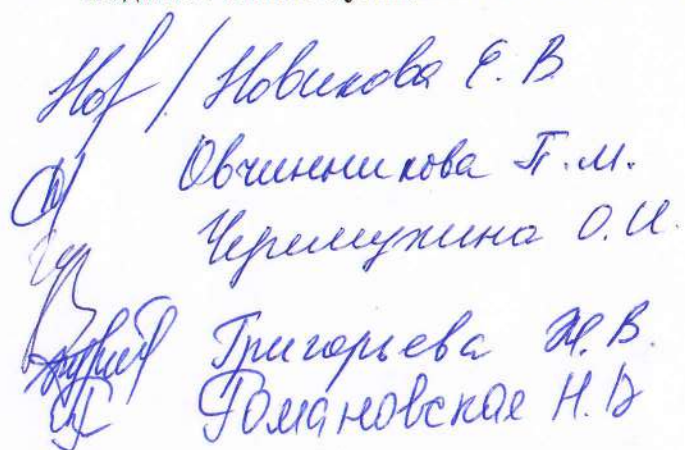 Нов / Новикова Е. В
Овчинникова Т. М.
Черемухина О. И.
Григорьева Ж. В.
Романовская Н. В